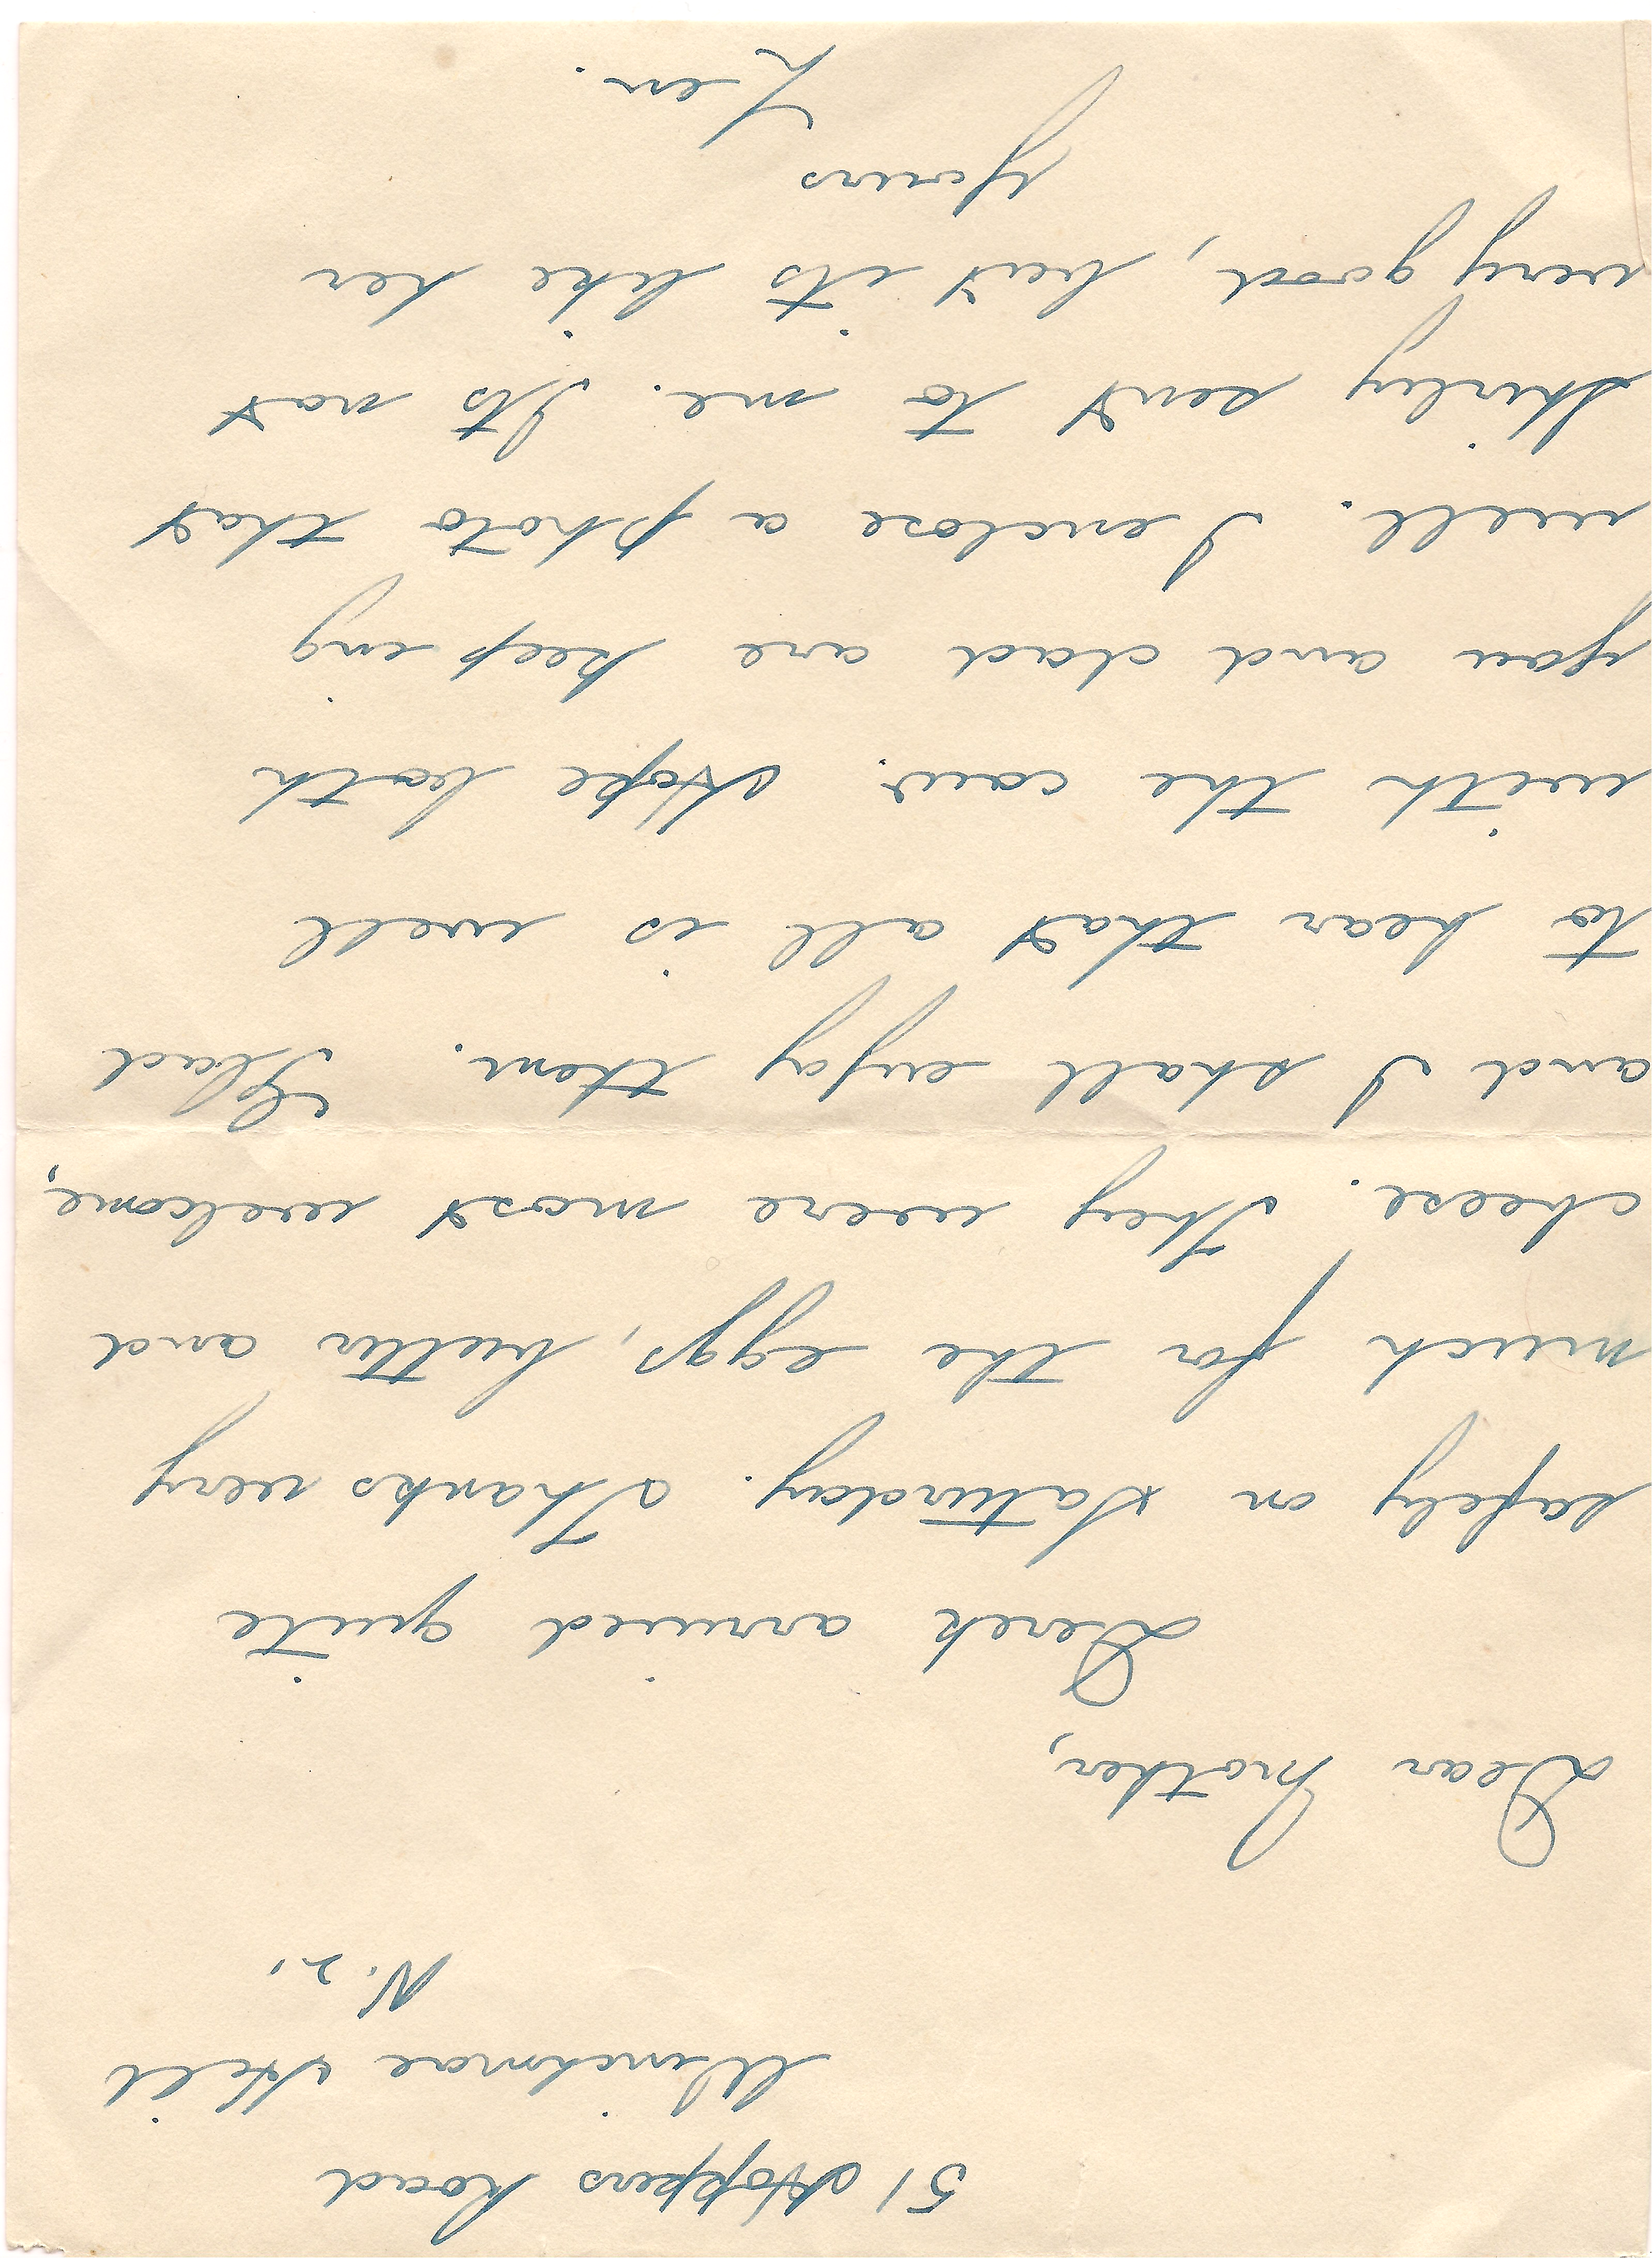 51 Hoppers Road
Winchmore Hill
N. 2.
Dear Mother,
Derek arrived quite
safely on Saturday. Thanks very
much for the eggs, butter and
cheese. They were most welcome,
and I shall enjoy them. Glad
to hear that all is well
with the cow. Hope both
you and dad are keeping
well. I enclose a photo that
Shirley sent to me. Its not
very good, but its like her
Yours
Len.